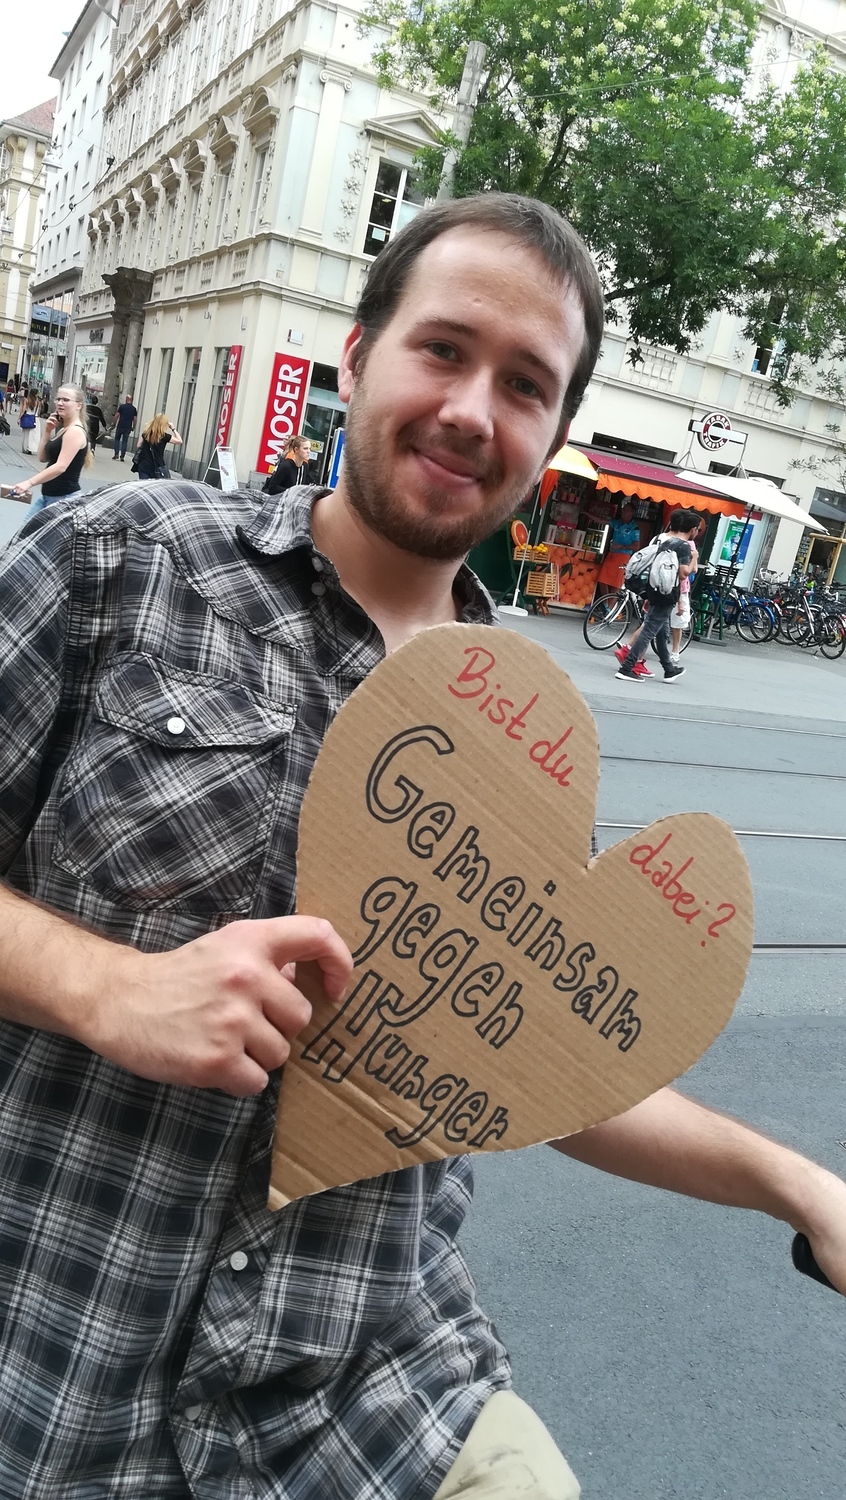 MOSER
MOSER
Bist du
dabei?
Gemeinsam
gegen
Hunger